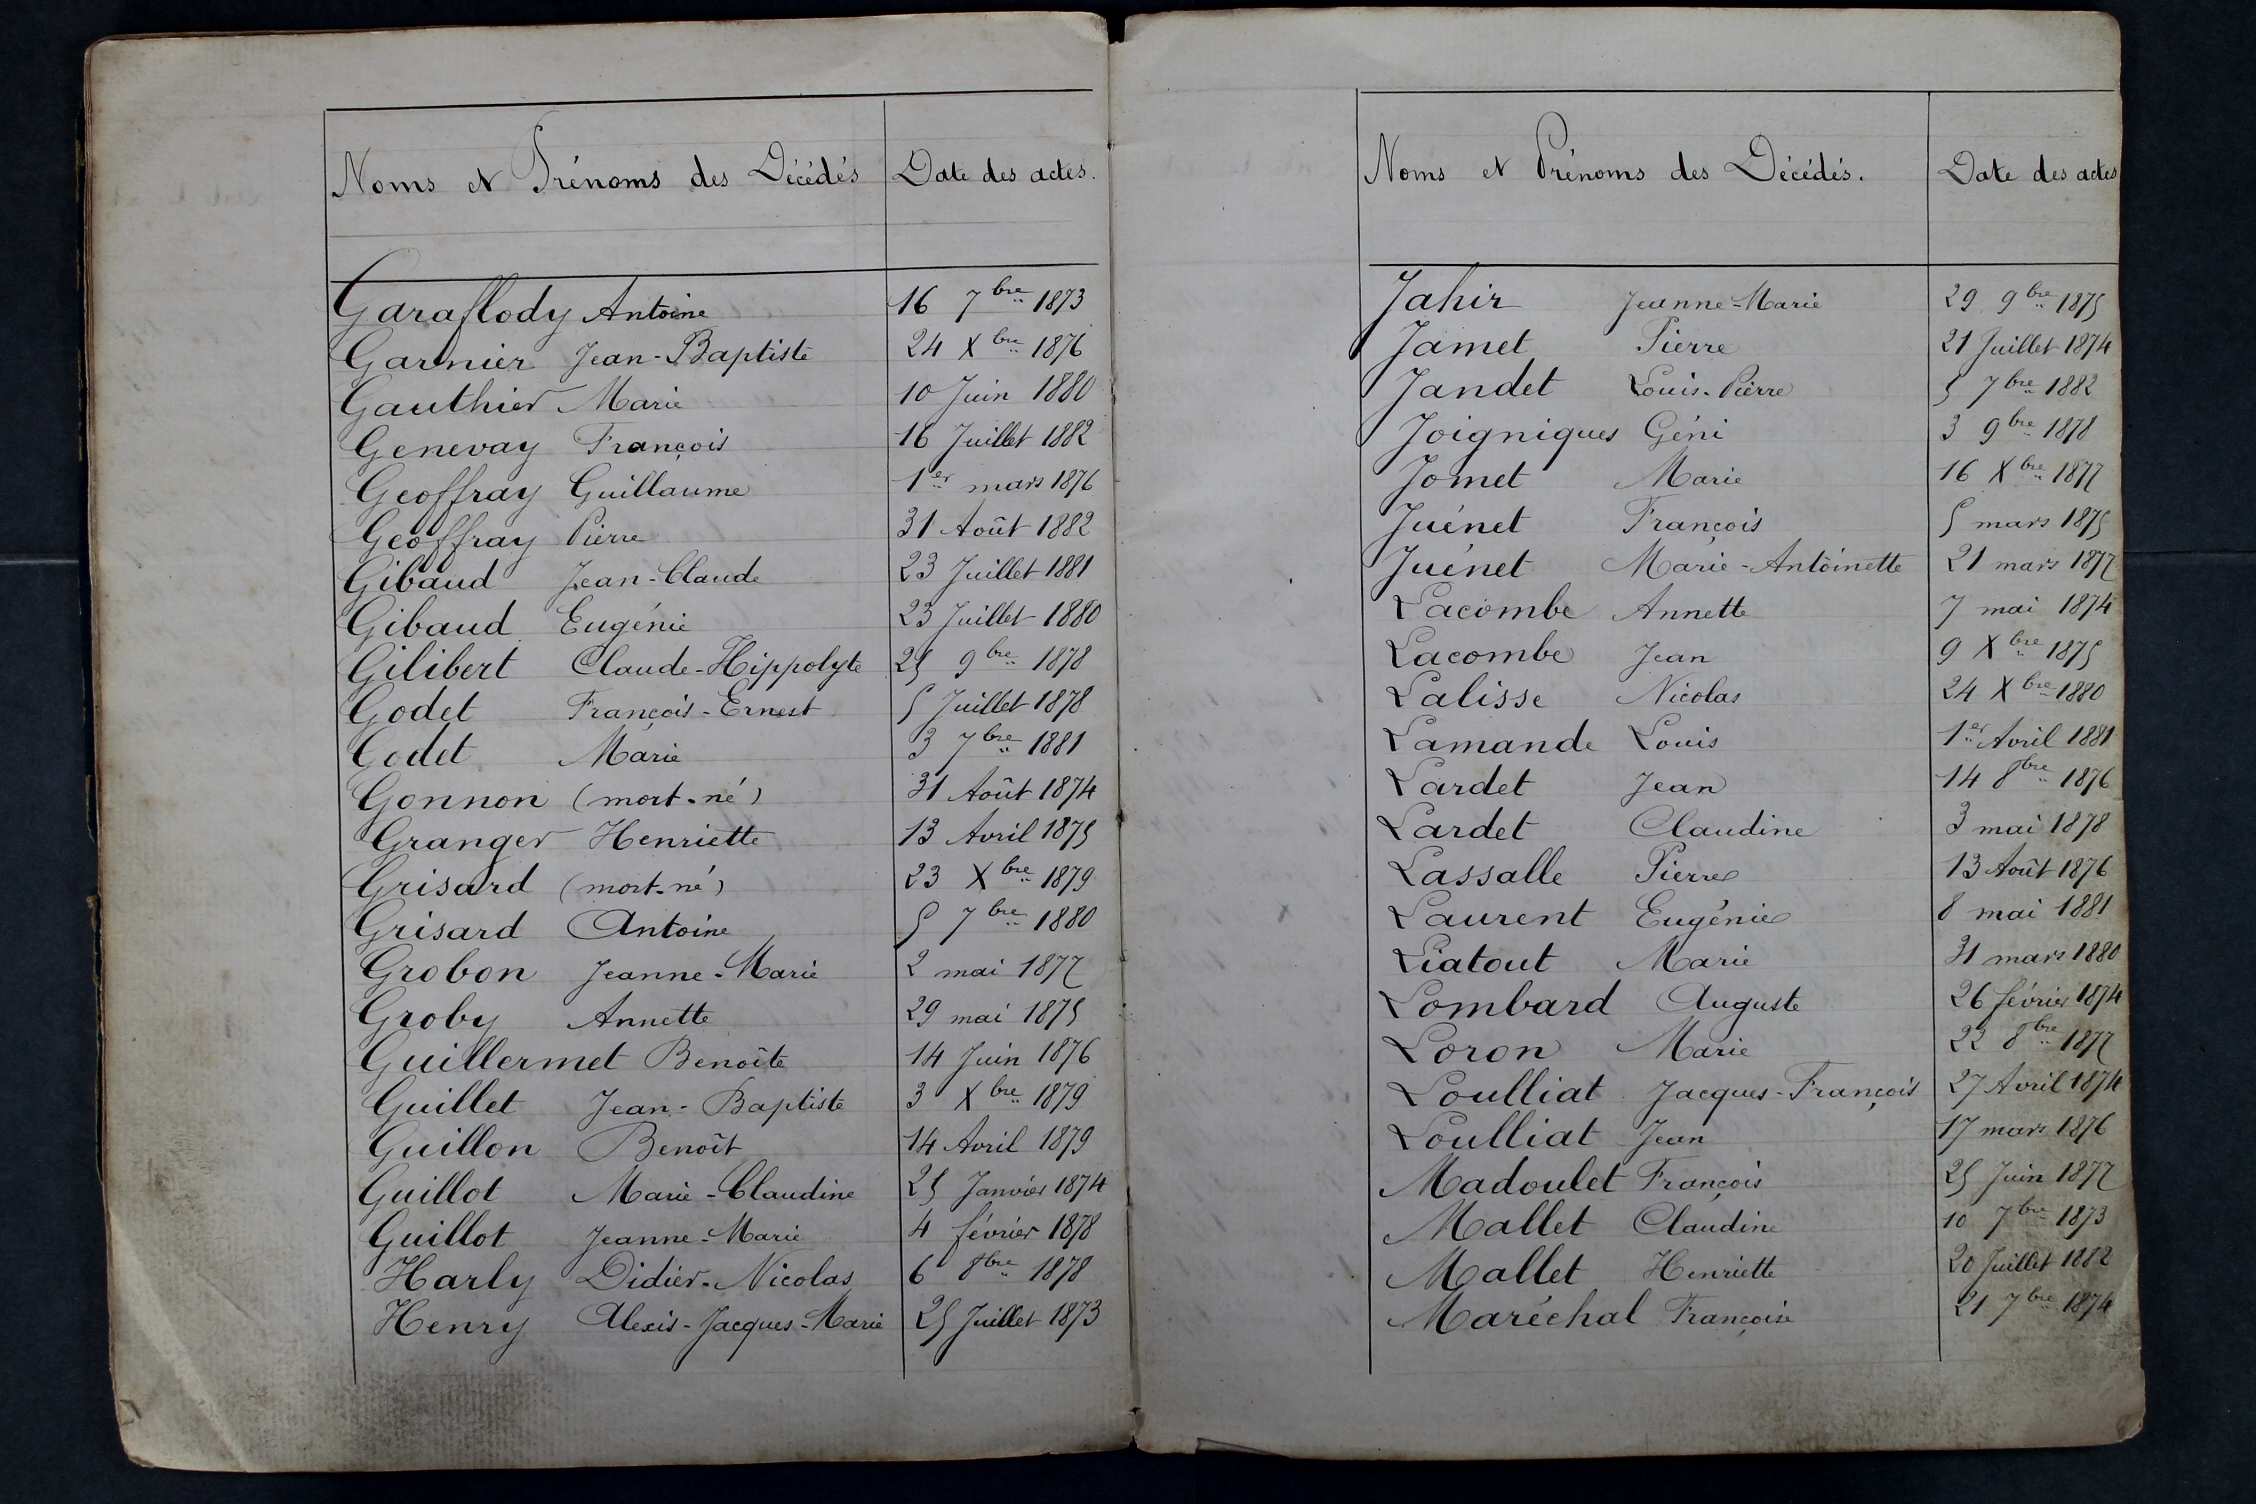 Noms et Prénoms des Décédés Date des actes.
Garaflody Antoine 16 7bre 1873
Garnier Jean-Baptiste 24 Xbre 1876
Gauthier Marie 10 Juin 1880
Genevay François 16 Juillet 1882
Geoffray Guillaume 1er mars 1876
Geoffray Pierre 31 Août 1882
Gibaud Jean-Claude 23 Juillet 1881
Gibaud Eugénie 23 Juillet 1880
Gilibert Claude-Hippolyte 25 9bre 1878
Godet François-Ernest 5 Juillet 1878
Godet Marie 3 7bre 1881
Gonnon (mort-né) 31 Août 1874
Granger Henriette 13 Avril 1875
Grisard (mort-né) 23 Xbre 1879
Grisard Antoine 5 7bre 1880
Grobon Jeanne-Marie 2 mai 1877
Groby Annette 29 mai 1875
Guillermet Benoîte 14 Juin 1876
Guillet Jean-Baptiste 3 Xbre 1879
Guillon Benoît 14 Avril 1879
Guillot Marie-Claudine 25 Janvier 1874
Guillot Jeanne-Marie 4 février 1878
Harly Didier-Nicolas 6 8bre 1878
Henry Alexis-Jacques-Marie 25 Juillet 1873
Noms et Prénoms des Décédés. Date des actes
Jahir Jeanne-Marie 29 9bre 1875
Jamet Pierre 21 Juillet 1874
Jandet Louis-Pierre 5 7bre 1882
Joigniques Géni 3 9bre 1878
Jomet Marie 16 Xbre 1877
Juénet François 5 mars 1875
Juénet Marie-Antoinette 21 mars 1877
Lacombe Annette 7 mai 1874
Lacombe Jean 9 Xbre 1875
Lalisse Nicolas 24 Xbre 1880
Lamande Louis 1er Avril 1881
Lardet Jean 14 8bre 1876
Lardet Claudine 3 mai 1878
Lassalle Pierre 13 Août 1876
Laurent Eugénie 8 mai 1881
Liatout Marie 31 mars 1880
Lombard Auguste 26 février 1874
Loron Marie 22 8bre 1877
Loulliat Jacques-François 27 Avril 1874
Loulliat Jean 17 mars 1876
Madoulet François 25 Juin 1877
Mallet Claudine 10 7bre 1873
Mallet Henriette 20 Juillet 1882
Maréchal Françoise 21 7bre 1874